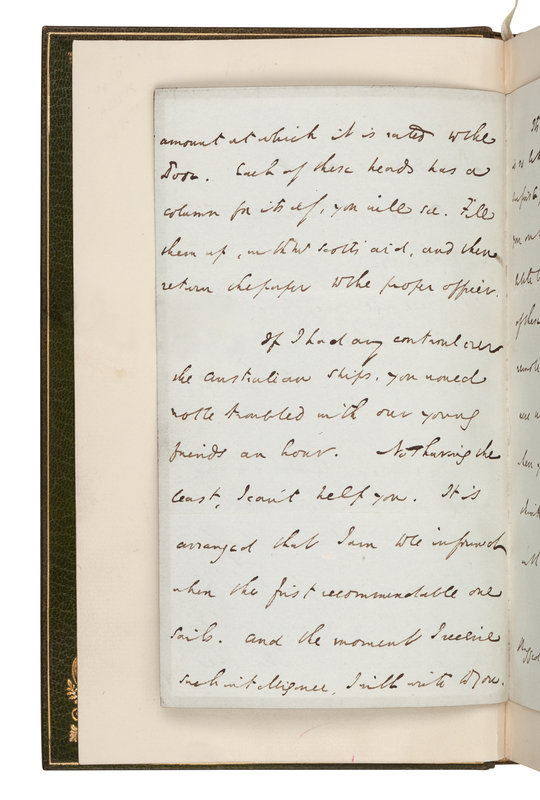 amount at which it is rated to the
Poor. Each of these heads has a
column for itself, you will see. Fill
them up, with Scott's aid, and then
return the paper to the proper officer.
If I had any control over
the Australian ships, you would
not be troubled with our young
friends an hour. Not having the
least, I can't help you. It is
arranged that I am to be informed
when the first recommendable one
sails. and the moment I receive
such intelligence, I will write to you.